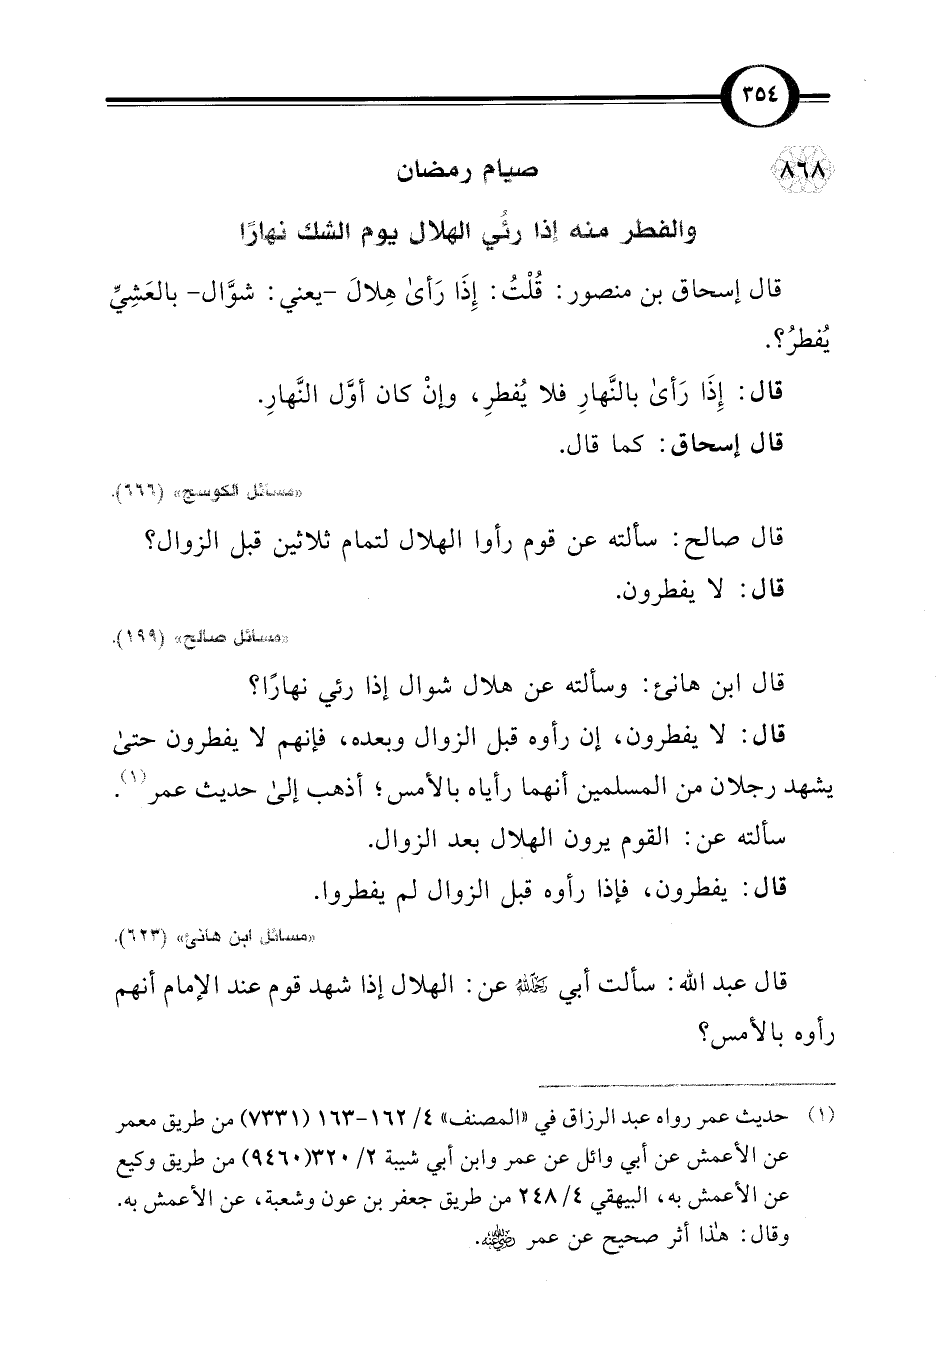 ٣٥٤
٨٦٨ صيام رمضان
والفطر منه إذا رئُي الهلال يوم الشك نهارًا
قال إسحاق بن منصور: قُلْتُ: إِذَا رَأىٰ هِلالَ -يعني: شوَّال- بالعَشِيِّ
يُفطرُ؟.
قال: إِذَا رَأىٰ بالنَّهارِ فلا يُفطرِ، وإنْ كان أوَّل النَّهارِ.
قال إسحاق: كما قال.
«مسائل الكوسج» (٦٦٦).
قال صالح: سألته عن قوم رأوا الهلال لتمام ثلاثين قبل الزوال؟
قال: لا يفطرون.
«مسائل صالح» (١٩٩).
قال ابن هانئ: وسألته عن هلال شوال إذا رئي نهارًا؟
قال: لا يفطرون، إن رأوه قبل الزوال وبعده، فإنهم لا يفطرون حتىٰ
يشهد رجلان من المسلمين أنهما رأياه بالأمس؛ أذهب إلىٰ حديث عمر(١).
سألته عن: القوم يرون الهلال بعد الزوال.
قال: يفطرون، فإذا رأوه قبل الزوال لم يفطروا.
«مسائل ابن هانئ» (٦٢٣).
قال عبد الله: سألت أبي رحمه الله عن: الهلال إذا شهد قوم عند الإمام أنهم
رأوه بالأمس؟
(١) حديث عمر رواه عبد الرزاق في «المصنف» ٤/ ١٦٢-١٦٣ (٧٣٣١) من طريق معمر
عن الأعمش عن أبي وائل عن عمر وابن أبي شيبة ٢/ ٣٢٠(٩٤٦٠) من طريق وكيع
عن الأعمش به، البيهقي ٤/ ٢٤٨ من طريق جعفر بن عون وشعبة، عن الأعمش به.
وقال: هٰذا أثر صحيح عن عمر رضي الله عنه.